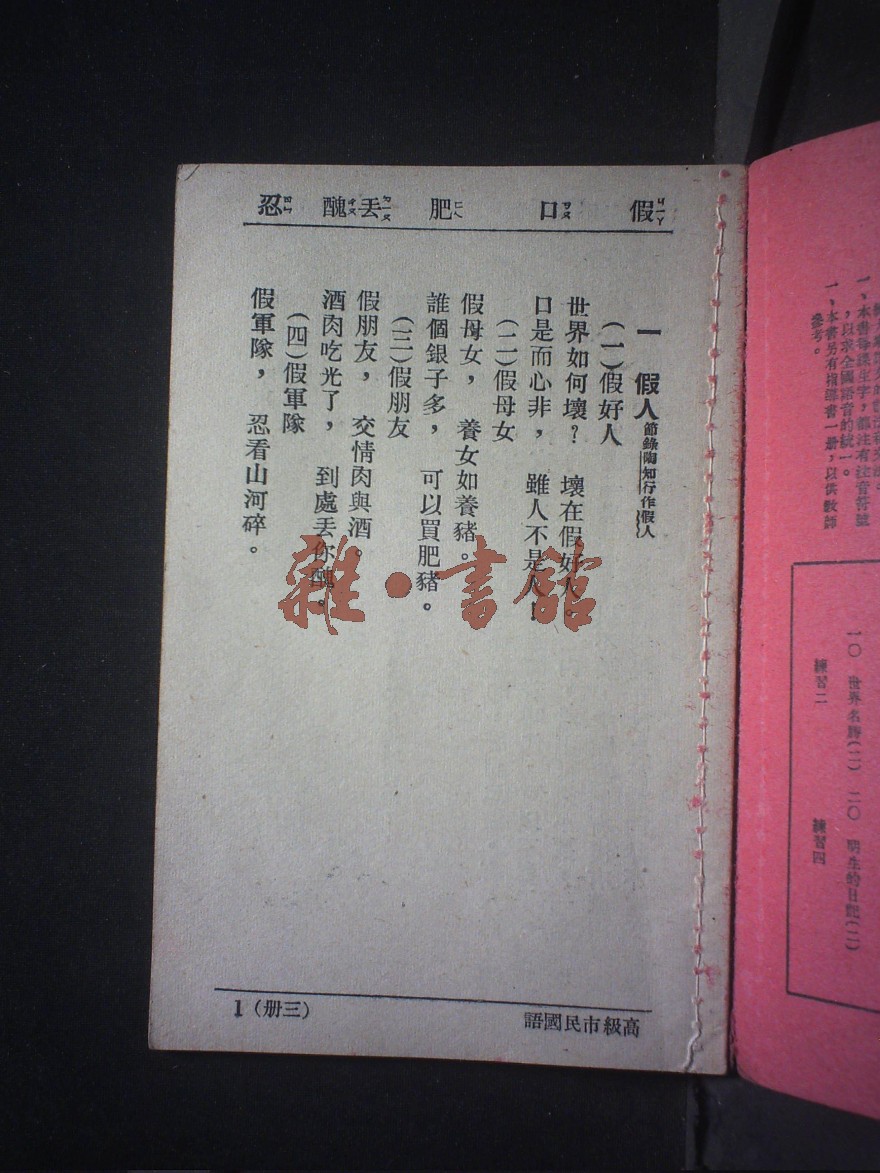 假ㄐㄧㄚ 口ㄎㄡ 肥ㄈㄟ 丟ㄉㄧㄡ 醜ㄔㄡ 忍ㄖㄣ
一 假人 節錄陶知行作假人
(一)假好人
世界如何壞? 壞在假好人。
口是而心非, 雖人不是人!
(二)假母女
假母女, 養女如養豬。
誰個銀子多, 可以買肥豬。
(三)假朋友
假朋友, 交情肉與酒。
酒肉吃光了, 到處丟你醜。
(四)假軍隊
假軍隊, 忍看山河碎。
高級市民國語
(三册) 1
雜·書館
一、本書每課生字,都注有注音符號
,以求全國語音的統一。
一、本書另有指導書一册,以供教師
參考。
一〇 世界名勝(二) 二〇 明生的日記(二)
練習二 練習四